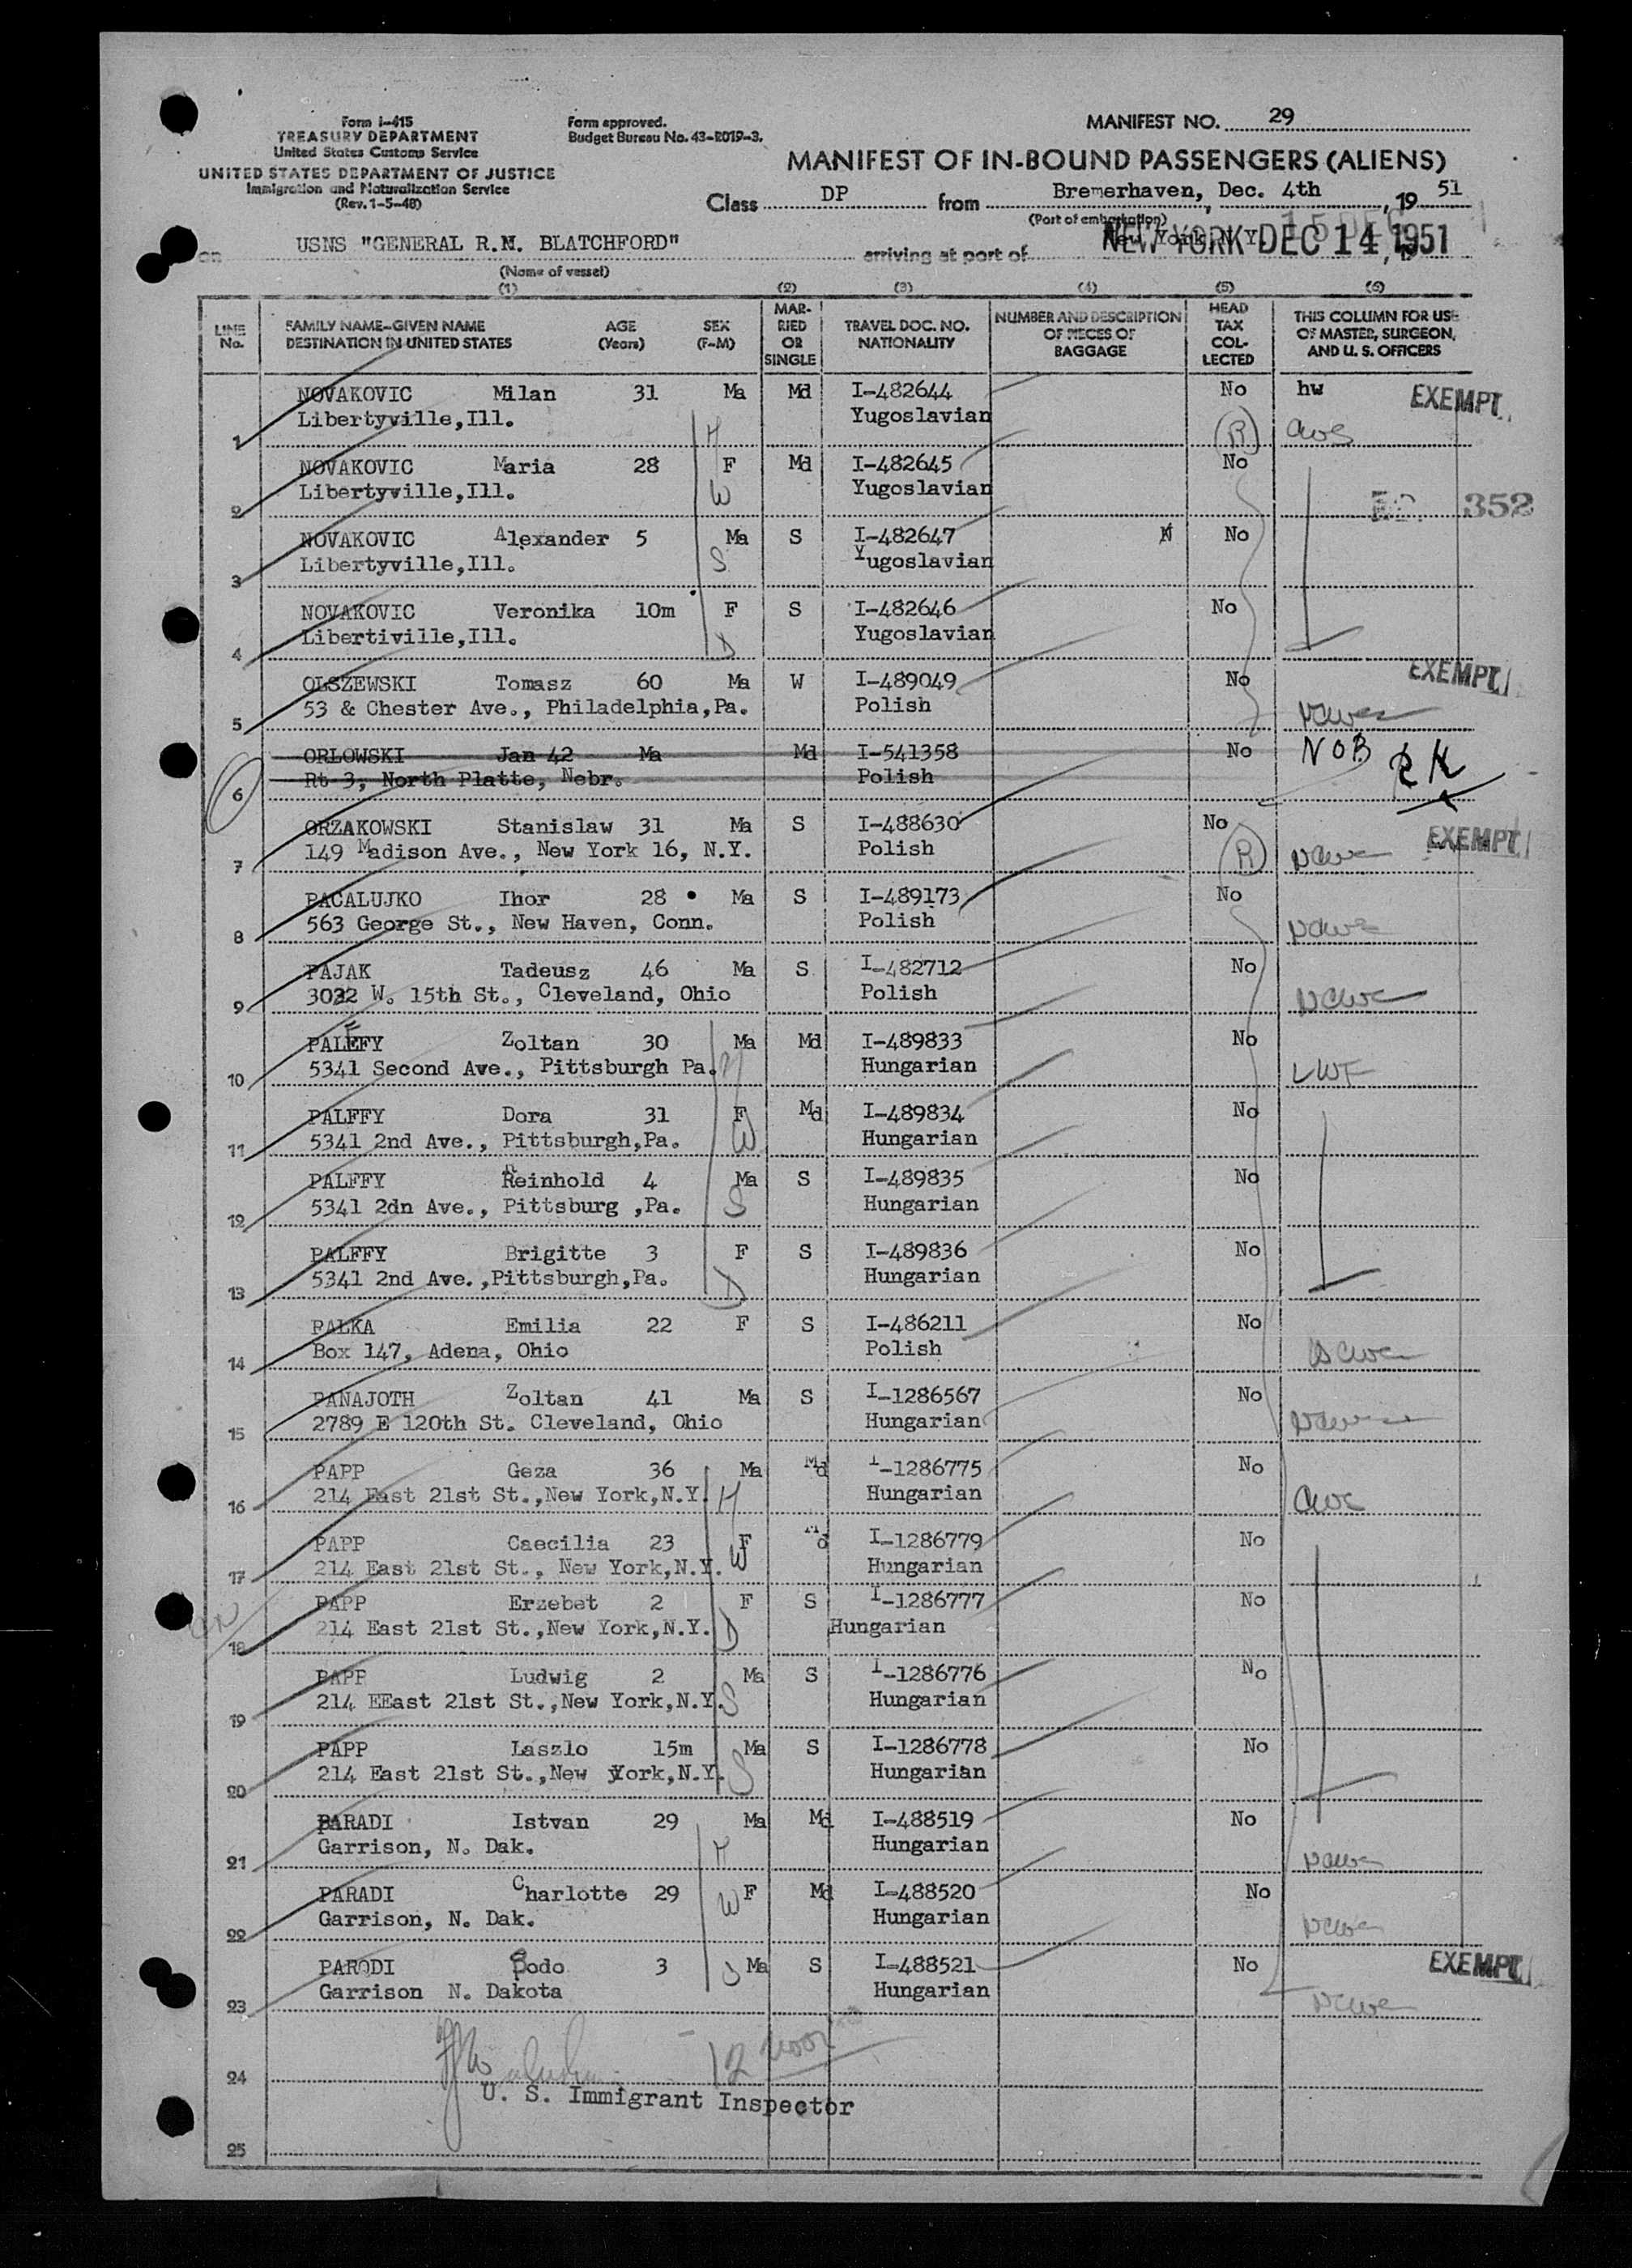 Form I-415
TREASURY DEPARTMENT
United States Customs Service
UNITED STATES DEPARTMENT OF JUSTICE
Immigration and Naturalization Service
(Rev. 1-5-48)
Form approved.
Budget Bureau No. 43-R019-3.
MANIFEST NO. 29
MANIFEST OF IN-BOUND PASSENGERS (ALIENS)
Class DP from Bremerhaven, Dec. 4th, 19 51
(Port of embarkation)
on USNS "GENERAL R.M. BLATCHFORD" arriving at port of NEW YORK DEC 14 1951
(Name of vessel)
(1) (2) (3) (4) (5) (6)
LINE No. FAMILY NAME-GIVEN NAME DESTINATION IN UNITED STATES AGE (Years) SEX (F-M) MARRIED OR SINGLE TRAVEL DOC. NO. NATIONALITY NUMBER AND DESCRIPTION OF PIECES OF BAGGAGE HEAD TAX COLLECTED THIS COLUMN FOR USE OF MASTER, SURGEON, AND U. S. OFFICERS
NOVAKOVIC Milan 31 Ma Md I-482644 No hw EXEMPT
1 Libertyville,Ill. H Yugoslavian (R)
NOVAKOVIC Maria 28 F Md I-482645 No
2 Libertyville,Ill. W Yugoslavian 352
NOVAKOVIC Alexander 5 Ma S I-482647 No
3 Libertyville,Ill. S Yugoslavian
NOVAKOVIC Veronika 10m F S I-482646 No
4 Libertiville,Ill. D Yugoslavian
OLSZEWSKI Tomasz 60 Ma W I-489049 No EXEMPT
5 53 & Chester Ave., Philadelphia,Pa. Polish
ORLOWSKI Jan 42 Ma Md I-541358 No NOB RK
6 Rt 3, North Platte, Nebr. Polish
ORZAKOWSKI Stanislaw 31 Ma S I-488630 No EXEMPT
7 149 Madison Ave., New York 16, N.Y. Polish (R)
PACALUJKO Ihor 28 Ma S I-489173 No
8 563 George St., New Haven, Conn. Polish
PAJAK Tadeusz 46 Ma S I-482712 No
9 3032 W. 15th St., Cleveland, Ohio Polish
PALFFY Zoltan 30 Ma Md I-489833 No
10 5341 Second Ave., Pittsburgh Pa. H Hungarian LWF
PALFFY Dora 31 F Md I-489834 No
11 5341 2nd Ave., Pittsburgh,Pa. W Hungarian
PALFFY Reinhold 4 Ma S I-489835 No
12 5341 2dn Ave., Pittsburg ,Pa. S Hungarian
PALFFY Brigitte 3 F S I-489836 No
13 5341 2nd Ave.,Pittsburgh,Pa. D Hungarian
PALKA Emilia 22 F S I-486211 No
14 Box 147, Adena, Ohio Polish
PANAJOTH Zoltan 41 Ma S I-1286567 No
15 2789 E 120th St. Cleveland, Ohio Hungarian
PAPP Geza 36 Ma Md I-1286775 No
16 214 East 21st St.,New York,N.Y. H Hungarian
PAPP Caecilia 23 F Md I-1286779 No
17 214 East 21st St., New York,N.Y. W Hungarian
PAPP Erzebet 2 F S I-1286777 No
18 214 East 21st St.,New York,N.Y. D Hungarian
PAPP Ludwig 2 Ma S I-1286776 No
19 214 EEast 21st St.,New York,N.Y. S Hungarian
PAPP Laszlo 15m Ma S I-1286778 No
20 214 East 21st St.,New York,N.Y. S Hungarian
PARADI Istvan 29 Ma Md I-488519 No
21 Garrison, N. Dak. H Hungarian
PARADI Charlotte 29 F Md I-488520 No
22 Garrison, N. Dak. W Hungarian
PARODI Bodo 3 Ma S I-488521 No EXEMPT
23 Garrison N. Dakota S Hungarian
24 12 noon
U. S. Immigrant Inspector
25